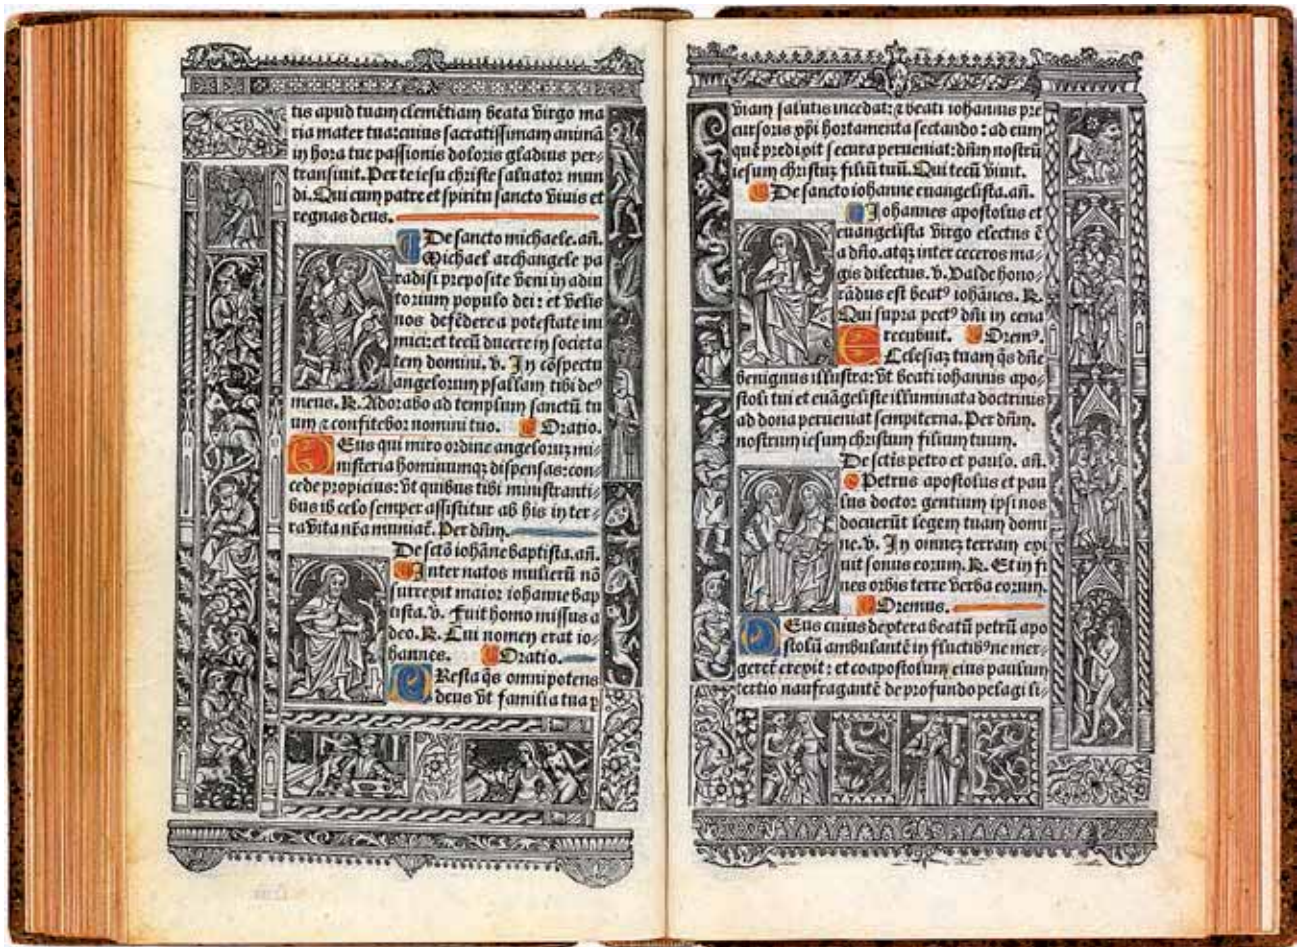 tis apud tuam clemētiam beata virgo ma
ria mater tua: cuius sacratissimam animā
in hora tue passionis doloris gladius per-
transiuit. Per te iesu christe saluator mun
di. Qui cum patre et spiritu sancto viuis et
regnas deus.
De sancto michaele. añ.
Michael archangele pa
radisi preposite veni in adiu
torium populo dei: et velis
nos defēdere a potestate ini
mici: et tecū ducere in societa
tem domini. v. In cōspectu
angelorum psallam tibi deꝰ
meus. R. Adorabo ad templum sanctū tu
um ⁊ confitebor nomini tuo. Oratio.
Deus qui miro ordine angeloruꝫ mi-
nisteria hominumqꝫ dispensas: con-
cede propicius: vt quibus tibi ministranti-
bus ī celo semper assistitur ab his in ter-
ra vita nr̄a muniat̄. Per dñm.
De sctō iohāne baptista. añ.
Inter natos mulierū nō
surrexit maior iohanne bap
tista. v. Fuit homo missus a
deo. R. Cui nomen erat io-
hannes. Oratio.
Presta q̄s omnipotens
deus vt familia tua p
viam salutis incedat: ⁊ beati iohannis pre
cursoris xp̄i hortamenta sectando: ad eum
quē predixit secura perueniat: dñm nostrū
iesum christuꝫ filiū tuū. Qui tecū viuit.
De sancto iohanne euangelista. añ.
Iohannes apostolus et
euangelista virgo electus ē
a dño. atqꝫ inter ceteros ma-
gis dilectus. v. Valde hono-
rādus est beatꝰ iohānes. R.
Qui supra pectꝰ dñi in cena
recubuit. Oremꝰ.
Ecclesiaꝫ tuam q̄s dñe
benignus illustra: vt beati iohannis apo-
stoli tui et euāgeliste illuminata doctrinis
ad dona perueniat sempiterna. Per dñm.
nostrum iesum christum filium tuum.
De sctis petro et paulo. añ.
Petrus apostolus et pau
lus doctor gentium ipsi nos
docuerūt legem tuam domi
ne. v. In omneꝫ terram exi
uit sonus eorum. R. Et in fi
nes orbis terre verba eorum.
Oremus.
Deus cuius dextera beatū petrū apo
stolū ambulantē in fluctibꝰ ne mer-
geret̄ erexit: et coapostolum eius paulum
tertio naufragantē de profundo pelagi li-